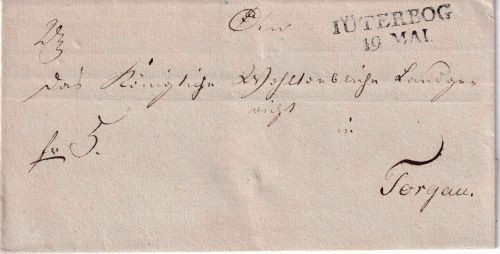 An
IÜTERBOG
19 MAI
Das Königliche Wohllöbliche Landge-
richt
in
fr 5.
Torgau.